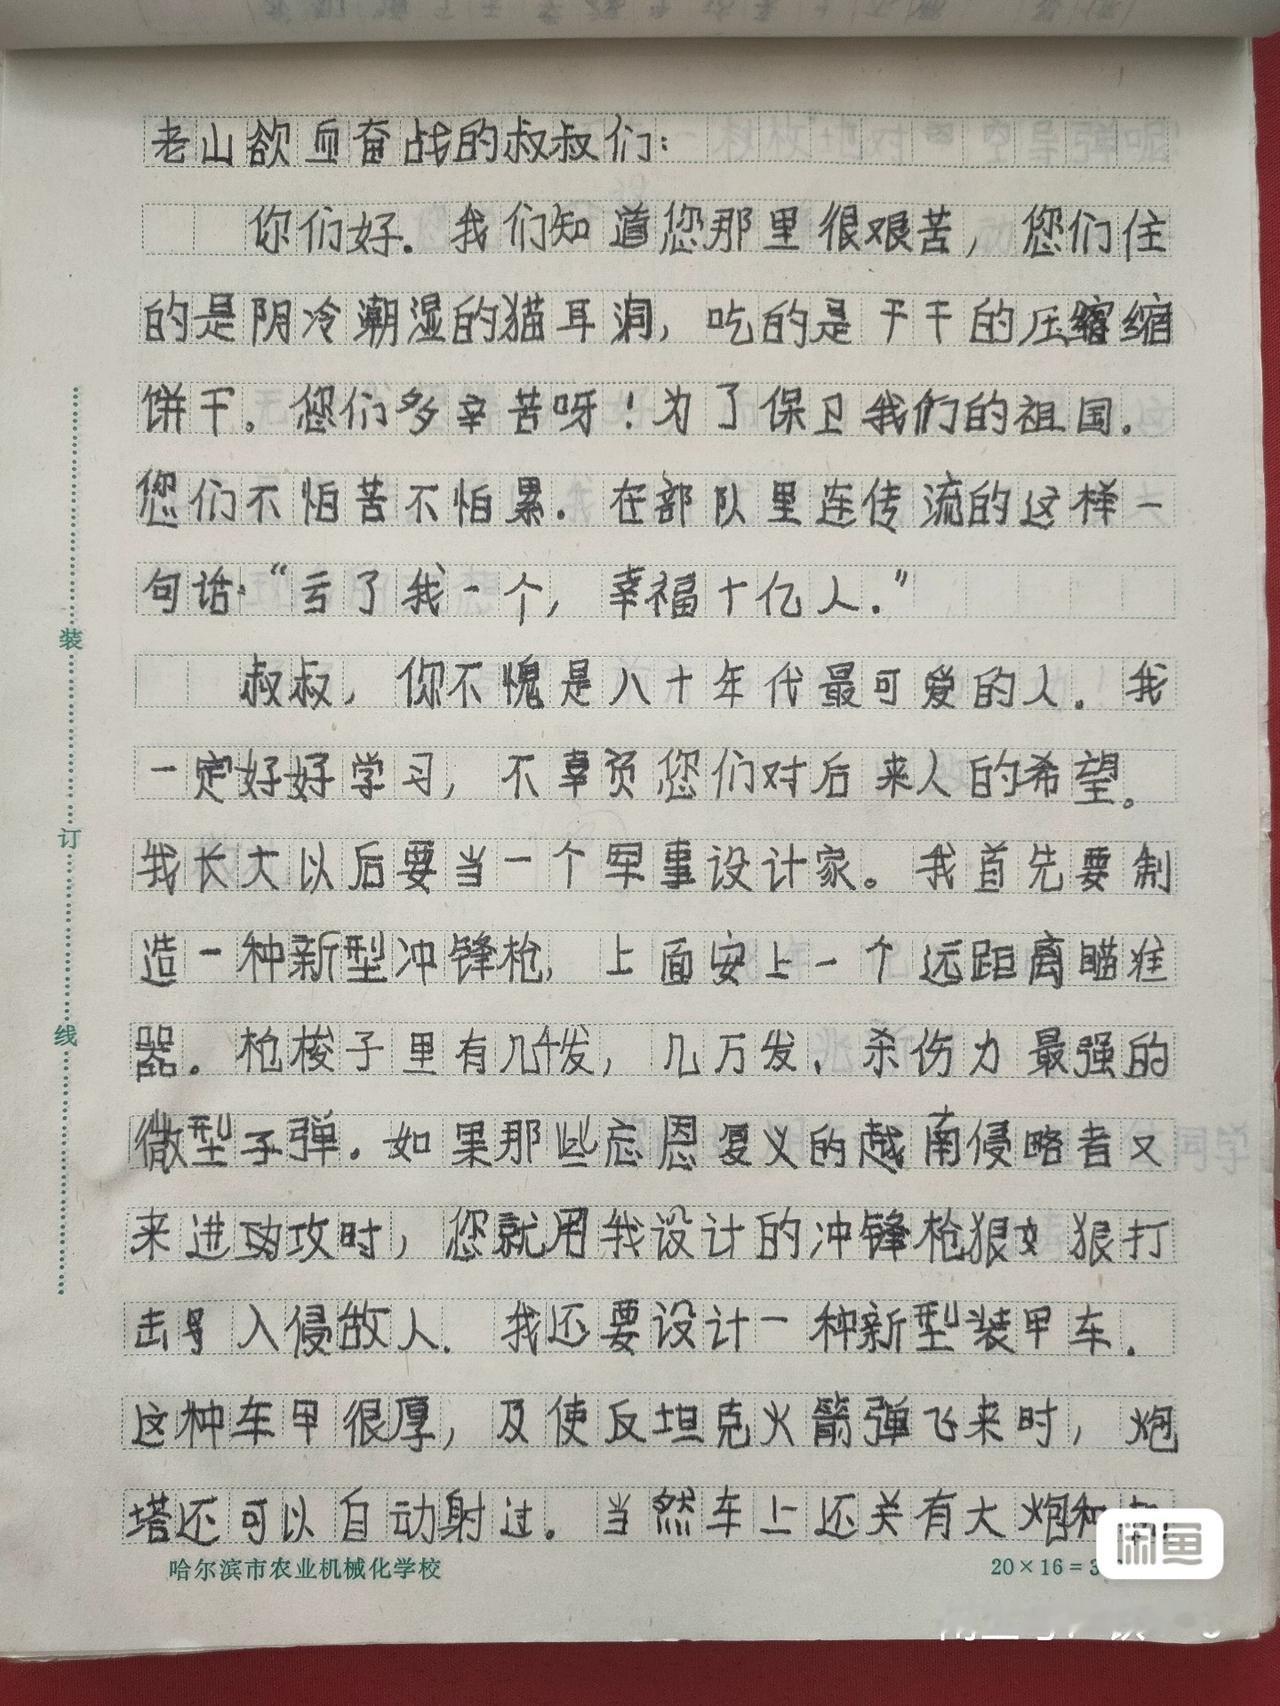 老山欲血奋战的叔叔们：
你们好．我们知道您那里很艰苦，您们住
的是阴冷潮湿的猫耳洞，吃的是干干的压缩缩
饼干。您们多辛苦呀！为了保卫我们的祖国．
您们不怕苦不怕累．在部队里连传流的这样一
句话：“亏了我一个，幸福十亿人．”
叔叔，你不愧是八十年代最可爱的人．我
一定好好学习，不辜负您们对后来人的希望。
我长大以后要当一个军事设计家。我首先要制
造一种新型冲锋枪，上面安上一个远距离瞄准
器．枪梭子里有几千发，几万发、杀伤力最强的
微型子弹．如果那些忘恩复义的越南侵略者又
来进攻时，您就用我设计的冲锋枪狠狠打
击入侵敌人．我还要设计一种新型装甲车．
这种车甲很厚，及使反坦克火箭弹飞来时，炮
塔还可以自动射过．当然车上还关有大炮和
装
订
线
哈尔滨市农业机械化学校
20×16=3
闲鱼